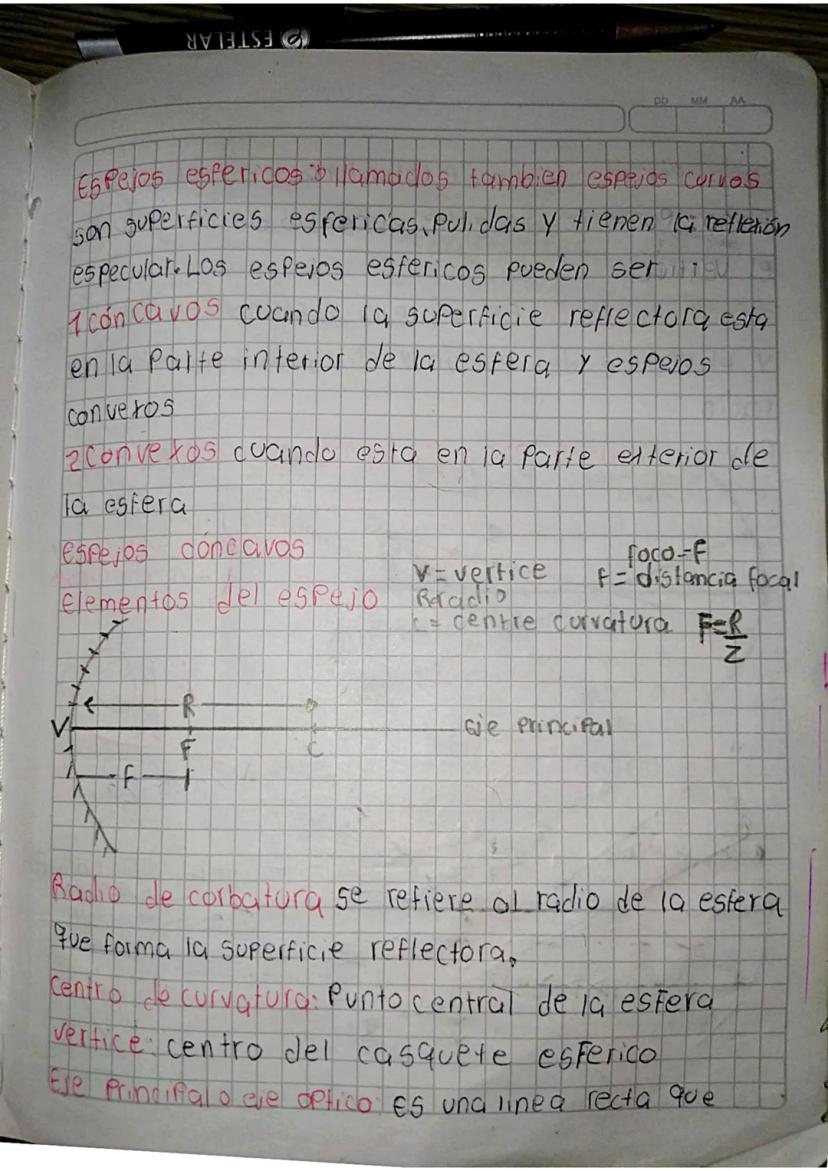 ESTELAR
DD MM AA
Espejos esfericos o llamados tambien espejos curvos
son superficies esfericas, pulidas y tienen la reflexión
especular. Los espejos esfericos pueden ser
1 cóncavos cuando la superficie reflectora esta
en la parte interior de la esfera y espejos
converos
2 convexos cuando esta en la parte exterior de
la esfera
espejos cóncavos
Elementos del espejo
V = vertice
Radio
C = centre curvatura
foco = F
f = distancia focal
F = R/2
R
V
F
C
eje principal
F
Radio de corbatura se refiere al radio de la esfera
que forma la superficie reflectora,
Centro de curvatura: Punto central de la esfera
vertice: centro del casquete esferico
Eje principal o eje optico: Es una linea recta que